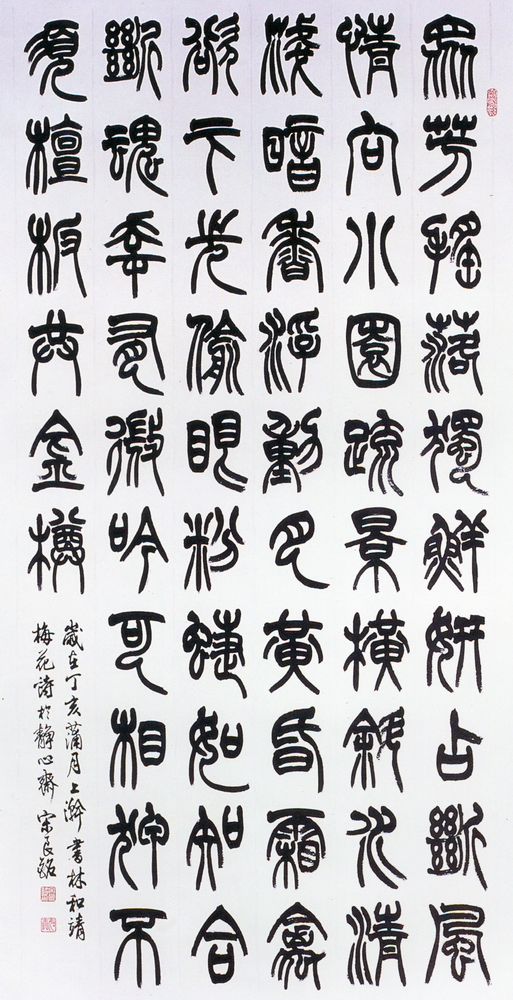 眾芳搖落獨鮮妍占斷風
情向小園疏景橫斜水清
淺暗香浮動月黃昏霜禽
欲下先偷眼粉蜨如知合
斷魂幸有微吟可相狎不
須檀板共金樽
歲在丁亥蒲月上澣書林和靖
梅花詩於靜心齋 宋良銘